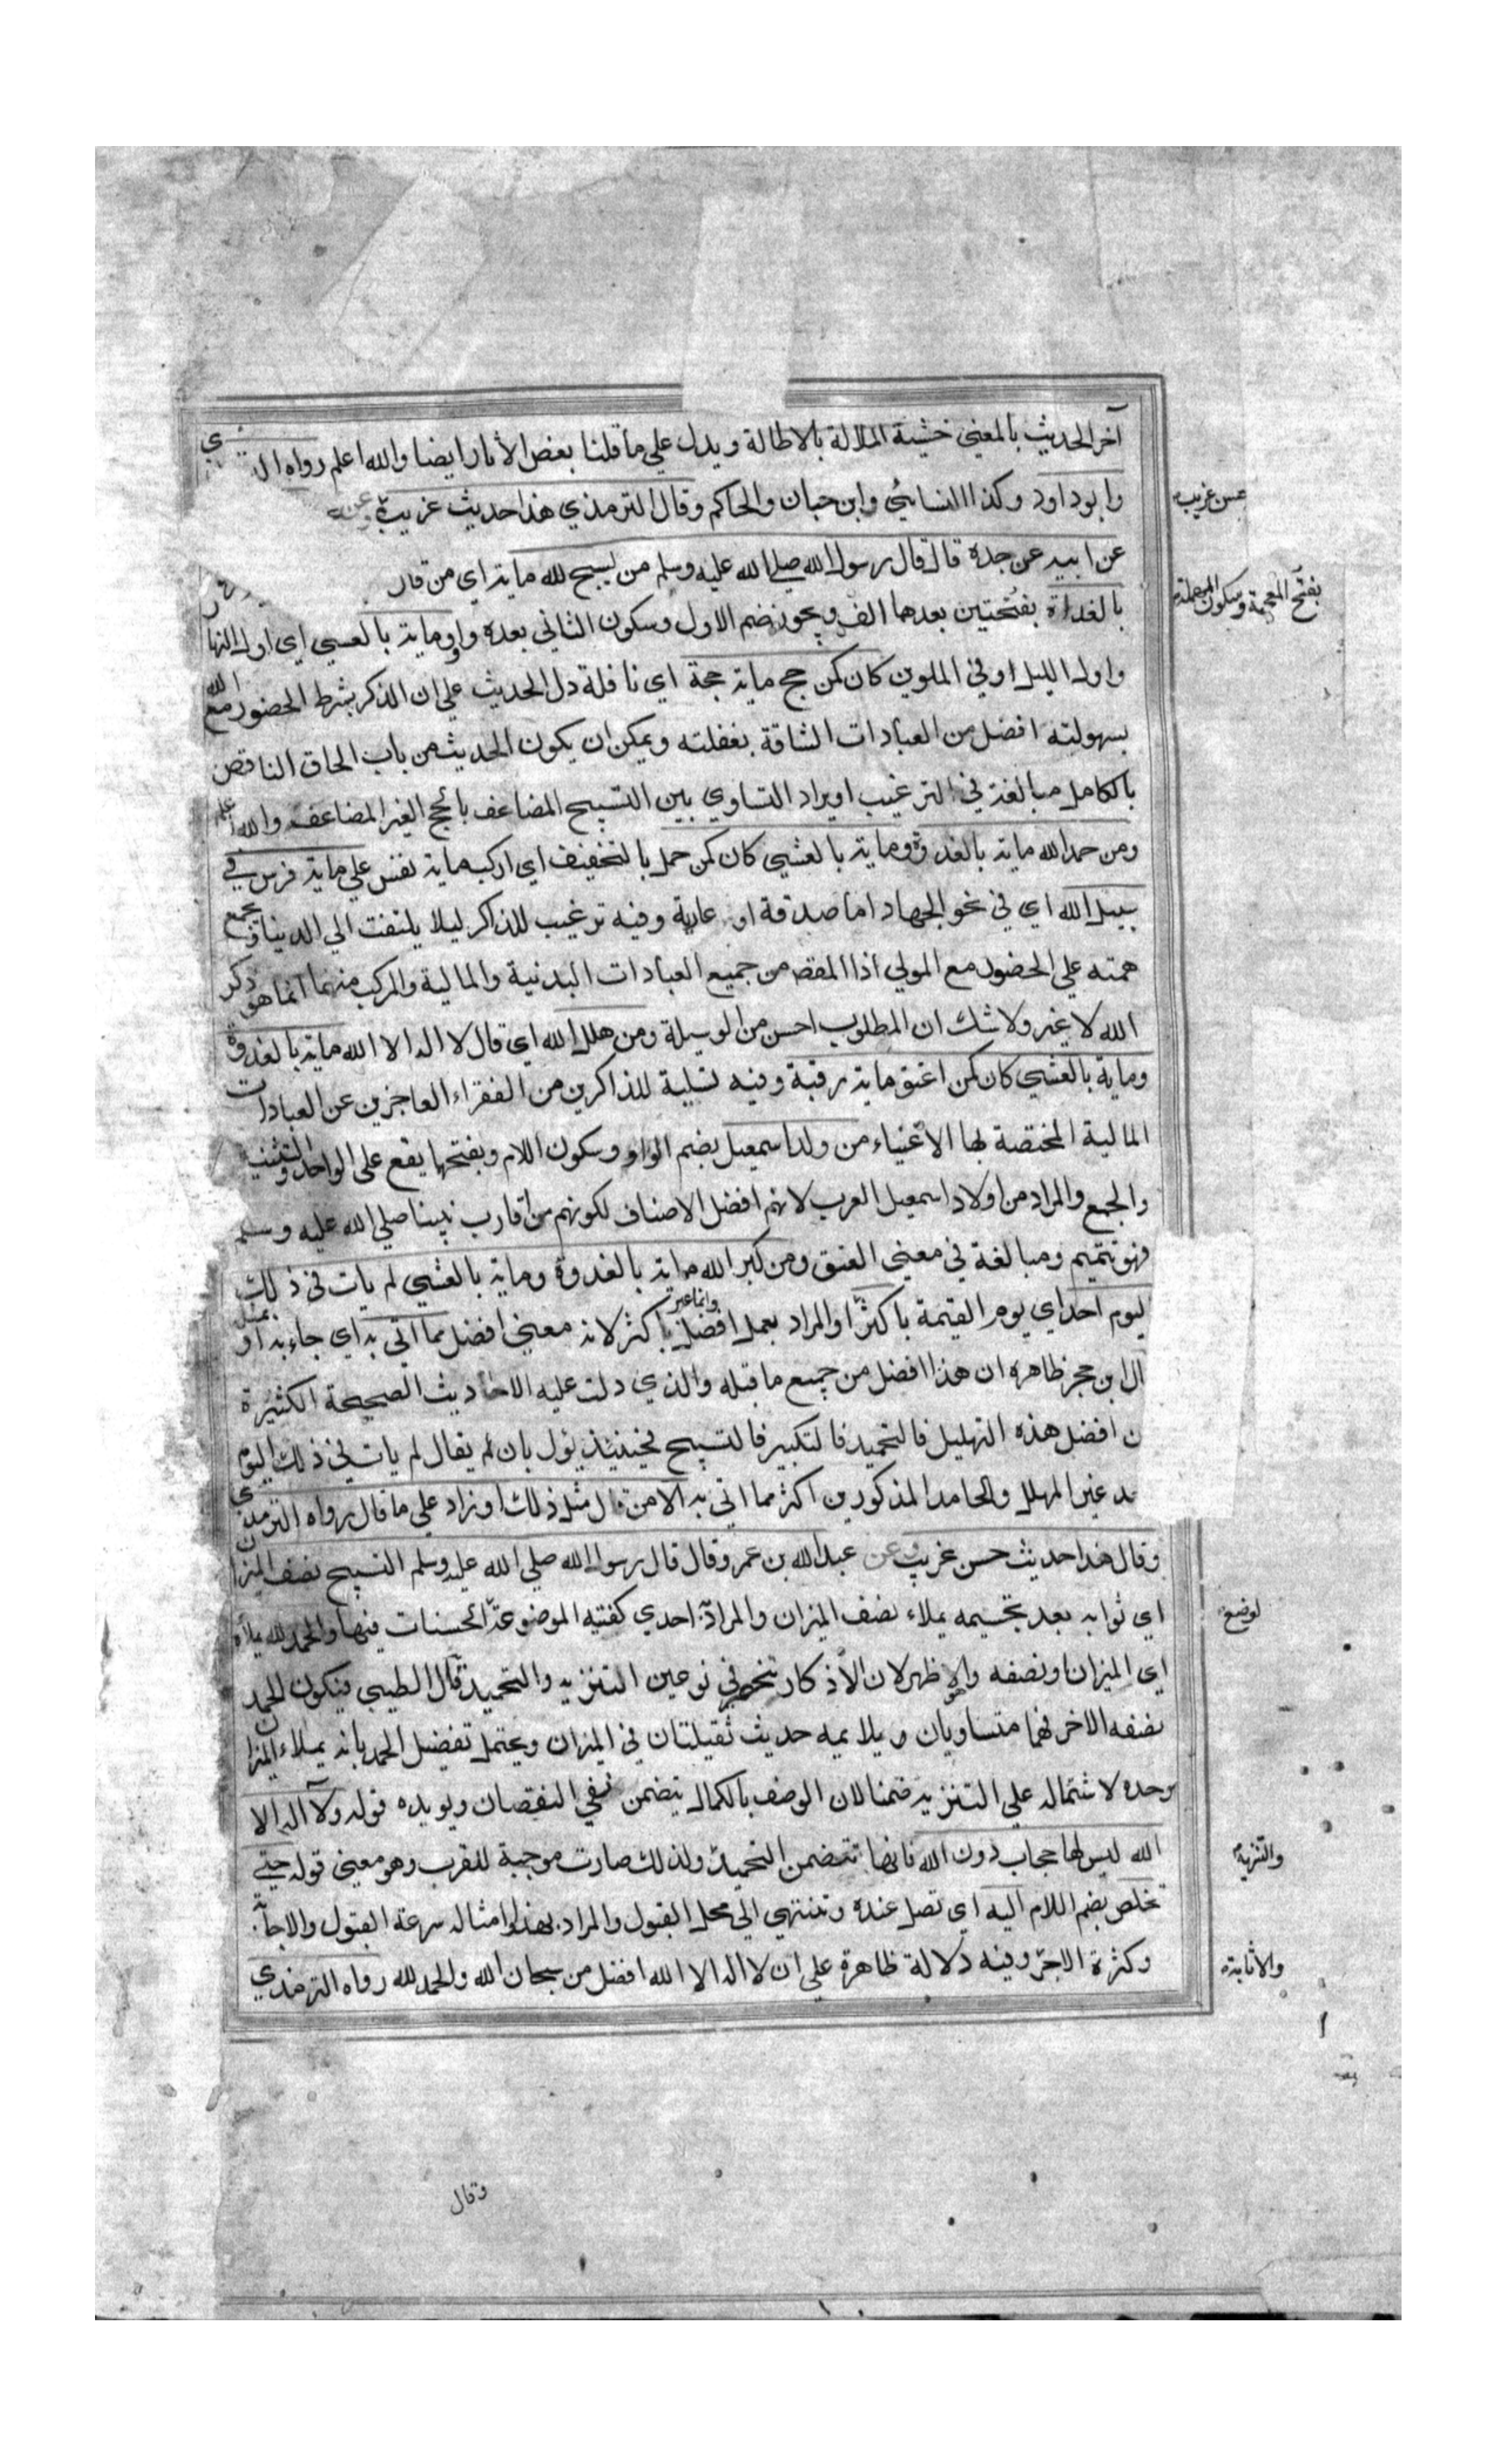 آخر الحديث بالمعني خشية الملالة بالاطالة ويدل علي ما قلنا بعض الأثار ايضا والله اعلم رواه
وابوداود وكذا النسائي وابن حبان والحاكم وقال الترمذي هذا حديث غريب وعن
حسن غريب
عن ابيه عن جده قال قال رسول الله صلي الله عليه وسلم من سبح لله ماية اي من قال
بالغداة بفتحتين بعدها الف ويجوز ضم الاول وسكون الثاني بعده واو وماية بالعشي اي اول النهار
بفتح المعجمة وسكون المهملة
واول الليل او في الملوين كان كمن حج ماية حجة اي نافلة دل الحديث علي ان الذكر بشرط الحضور مع الله
بسهولته افضل من العبادات الشاقة بغفلته ويمكن ان يكون الحديث من باب الحاق الناقص
بالكامل مبالغة في الترغيب او يراد التساوي بين التسبيح المضاعف بالحج الغير المضاعف والله اعلم
ومن حمد الله ماية بالغدوة وماية بالعشي كان كمن حمل بالتخفيف اي اركب ماية نفس علي ماية فرس في
سبيل الله اي في نحو الجهاد اما صدقة او عارية وفيه ترغيب للذاكر ليلا يلتفت الي الدنيا ويجمع
همته علي الحضور مع المولي اذا المقصد من جميع العبادات البدنية والمالية والمركب منهما انما هو ذكر
الله لا غير ولا شك ان المطلوب احسن من الوسيلة ومن هلل الله اي قال لا اله الا الله ماية بالغدوة
وماية بالعشي كان كمن اعتق ماية رقبة وفيه تسلية للذاكرين من الفقراء العاجزين عن العبادات
المالية المختصة بها الأغنياء من ولد اسمعيل بضم الواو وسكون اللام وبفتحها يقع علي الواحد والتثنية
والجمع والمراد من اولاد اسمعيل العرب لانهم افضل الاصناف لكونهم من اقارب نبينا صلي الله عليه وسلم
فهو تتميم ومبالغة في معني العتق ومن كبر الله ماية بالغدوة وماية بالعشي لم يات في ذلك
ليوم احد اي يوم القيمة باكثر او المراد بعمل افضل وانما عبر باكثر لانه معني افضل مما اتي به اي جاء به او بمثل
ال ابن حجر ظاهره ان هذا افضل من جميع ما قبله والذي دلت عليه الاحاديث الصحيحة الكثيرة
ن افضل هذه التهليل فالتحميد فالتكبير فالتسبيح فحينئذ يؤل بان يقال لم يات في ذلك اليوم
حد غير المهلل والحامد المذكورين اكثر مما اتي به الا من قال مثل ذلك او زاد علي ما قال رواه الترمذي
وقال هذا حديث حسن غريب وعن عبد الله بن عمرو قال قال رسول الله صلي الله عليه وسلم التسبيح نصف الميزان
اي ثوابه بعد تجسيمه يملاء نصف الميزان والمراد احدي كفتيه الموضوعة الحسنات فيها والحمد لله يملأه
لوضع
اي الميزان او نصفه والاظهر لان الأذكار تنحصر في نوعين التنزيه والتحميد قال الطيبي فيكون الحمد
نصفه الاخر فهما متساويان ويلايمه حديث ثقيلتان في الميزان ويحتمل تفضيل الحمد بانه يملاء الميزان
وحده لاشتماله علي التنزيه ضمنا لان الوصف بالكمال يتضمن نفي النقصان ويويده قوله ولا اله الا
الله ليس لها حجاب دون الله فانها تتضمن التحميد ولذلك صارت موجبة للقرب وهو معني قوله حتي
والتنزيه
تخلص بضم اللام اليه اي تصل عنده وتنتهي الي محل القبول والمراد بهذا وامثاله سرعة القبول والاجابة
وكثرة الاجر وفيه دلالة ظاهرة علي ان لا اله الا الله افضل من سبحان الله والحمد لله رواه الترمذي
والاثابة
وقال